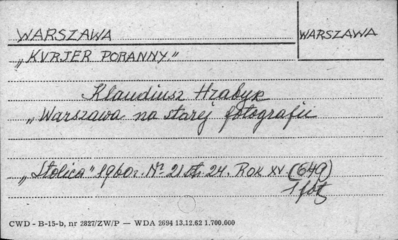 WARSZAWA
WARSZAWA
„KURJER PORANNY."
Klaudiusz Hrabyk
„Warszawa na starej fotografii
„Stolica" 1960r. Nr 21 str. 24. Rok XV (649)
1 fot.
CWD - B-15-b, nr 2827/ZW/P — WDA 2694 13.12.62 1.700.000